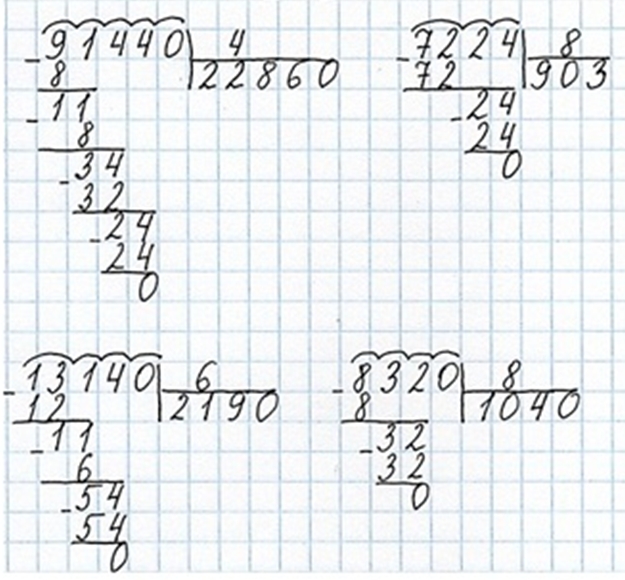 - 91440 | 4
8 | 22860
- 11
8
- 34
32
- 24
24
0
- 7224 | 8
72 | 903
- 24
24
0
- 13140 | 6
12 | 2190
- 11
6
- 54
54
0
- 8320 | 8
8 | 1040
- 32
32
0